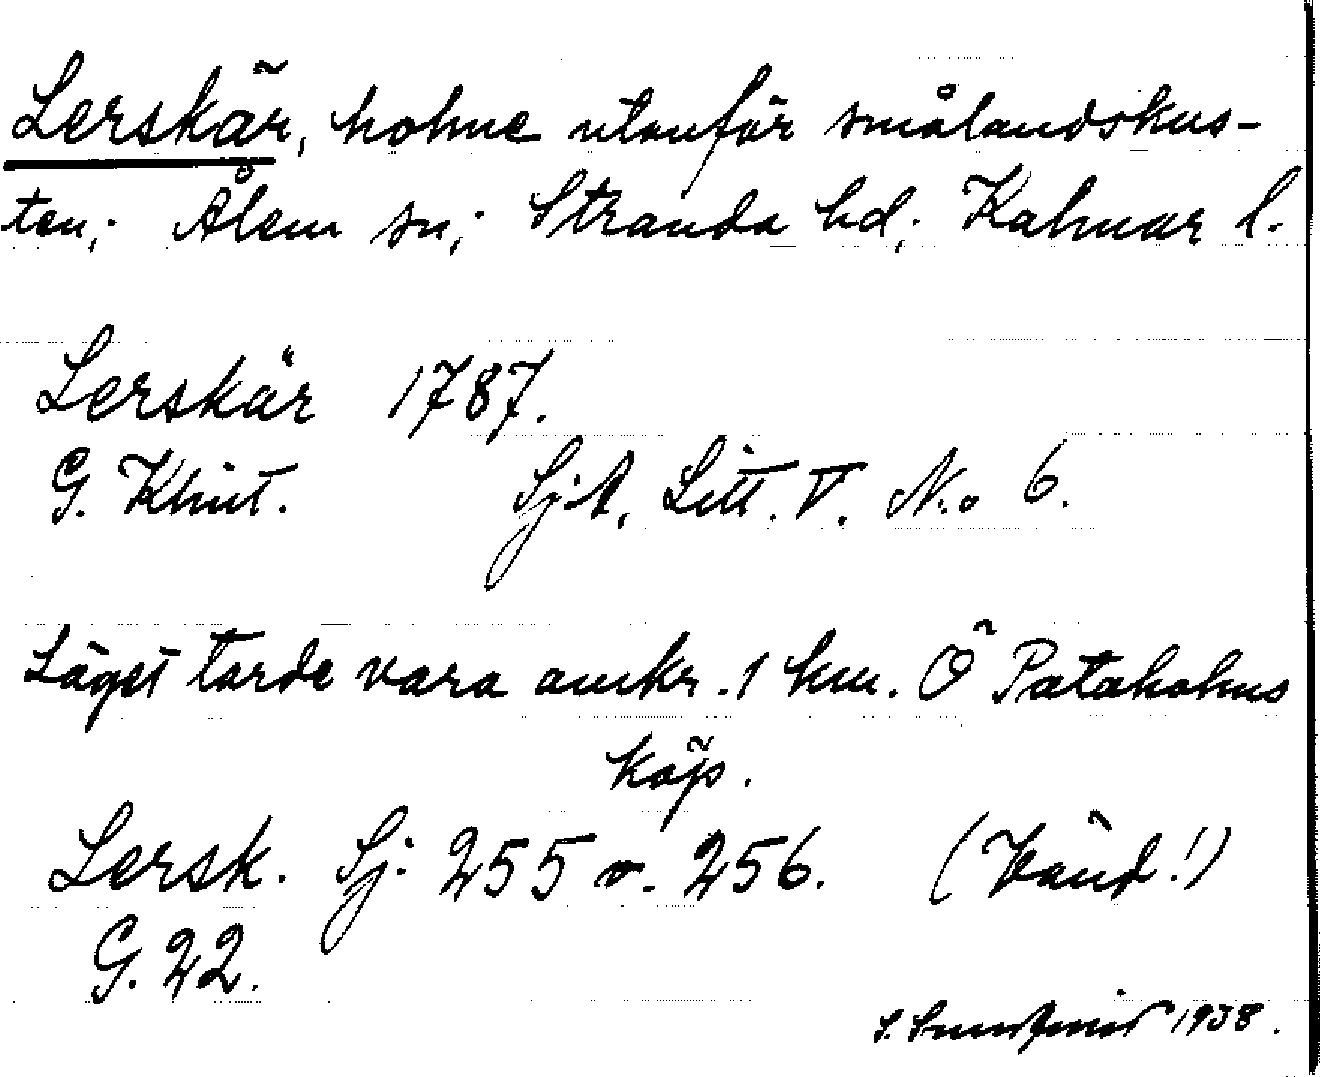 Lerskär, holme utanför smålandskus-
ten; Ålem sn; Stranda hd; Kalmar l.
Lerskär 1787.
G. Klint. Sj.A. Litt. V. N:o 6.
Läget torde vara omkr. 1 km. Ö Pataholms
köp.
Lersk. Sj. 255 o. 256. (Vänd!)
G. 22.
1938.